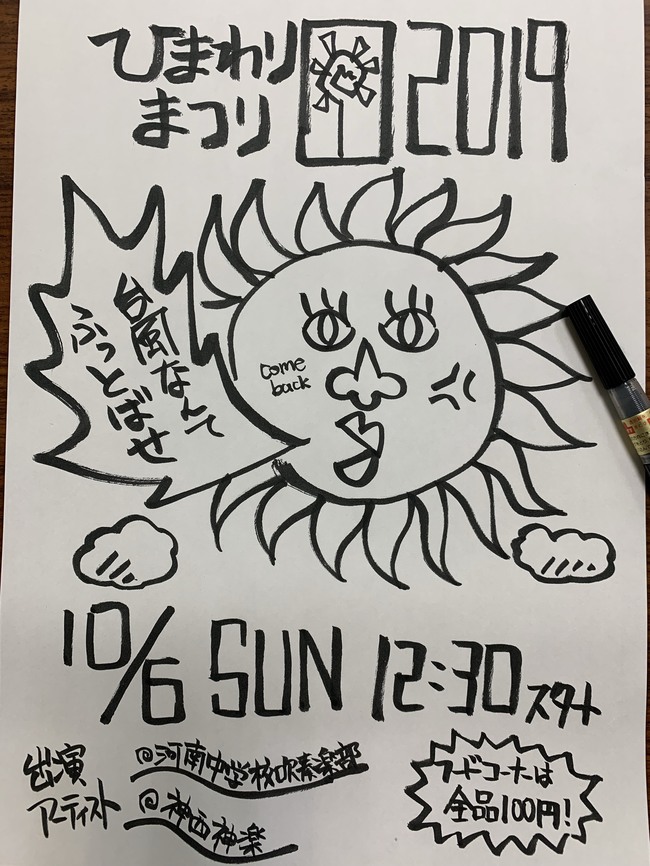 ひまわり
まつり
2019
台風なんて
ふっとばせ
come
back
10/6 SUN 12:30 スタート
出演
アーティスト
@河南中学校吹奏楽部
@神西神楽
フードコーナーは
全品100円!